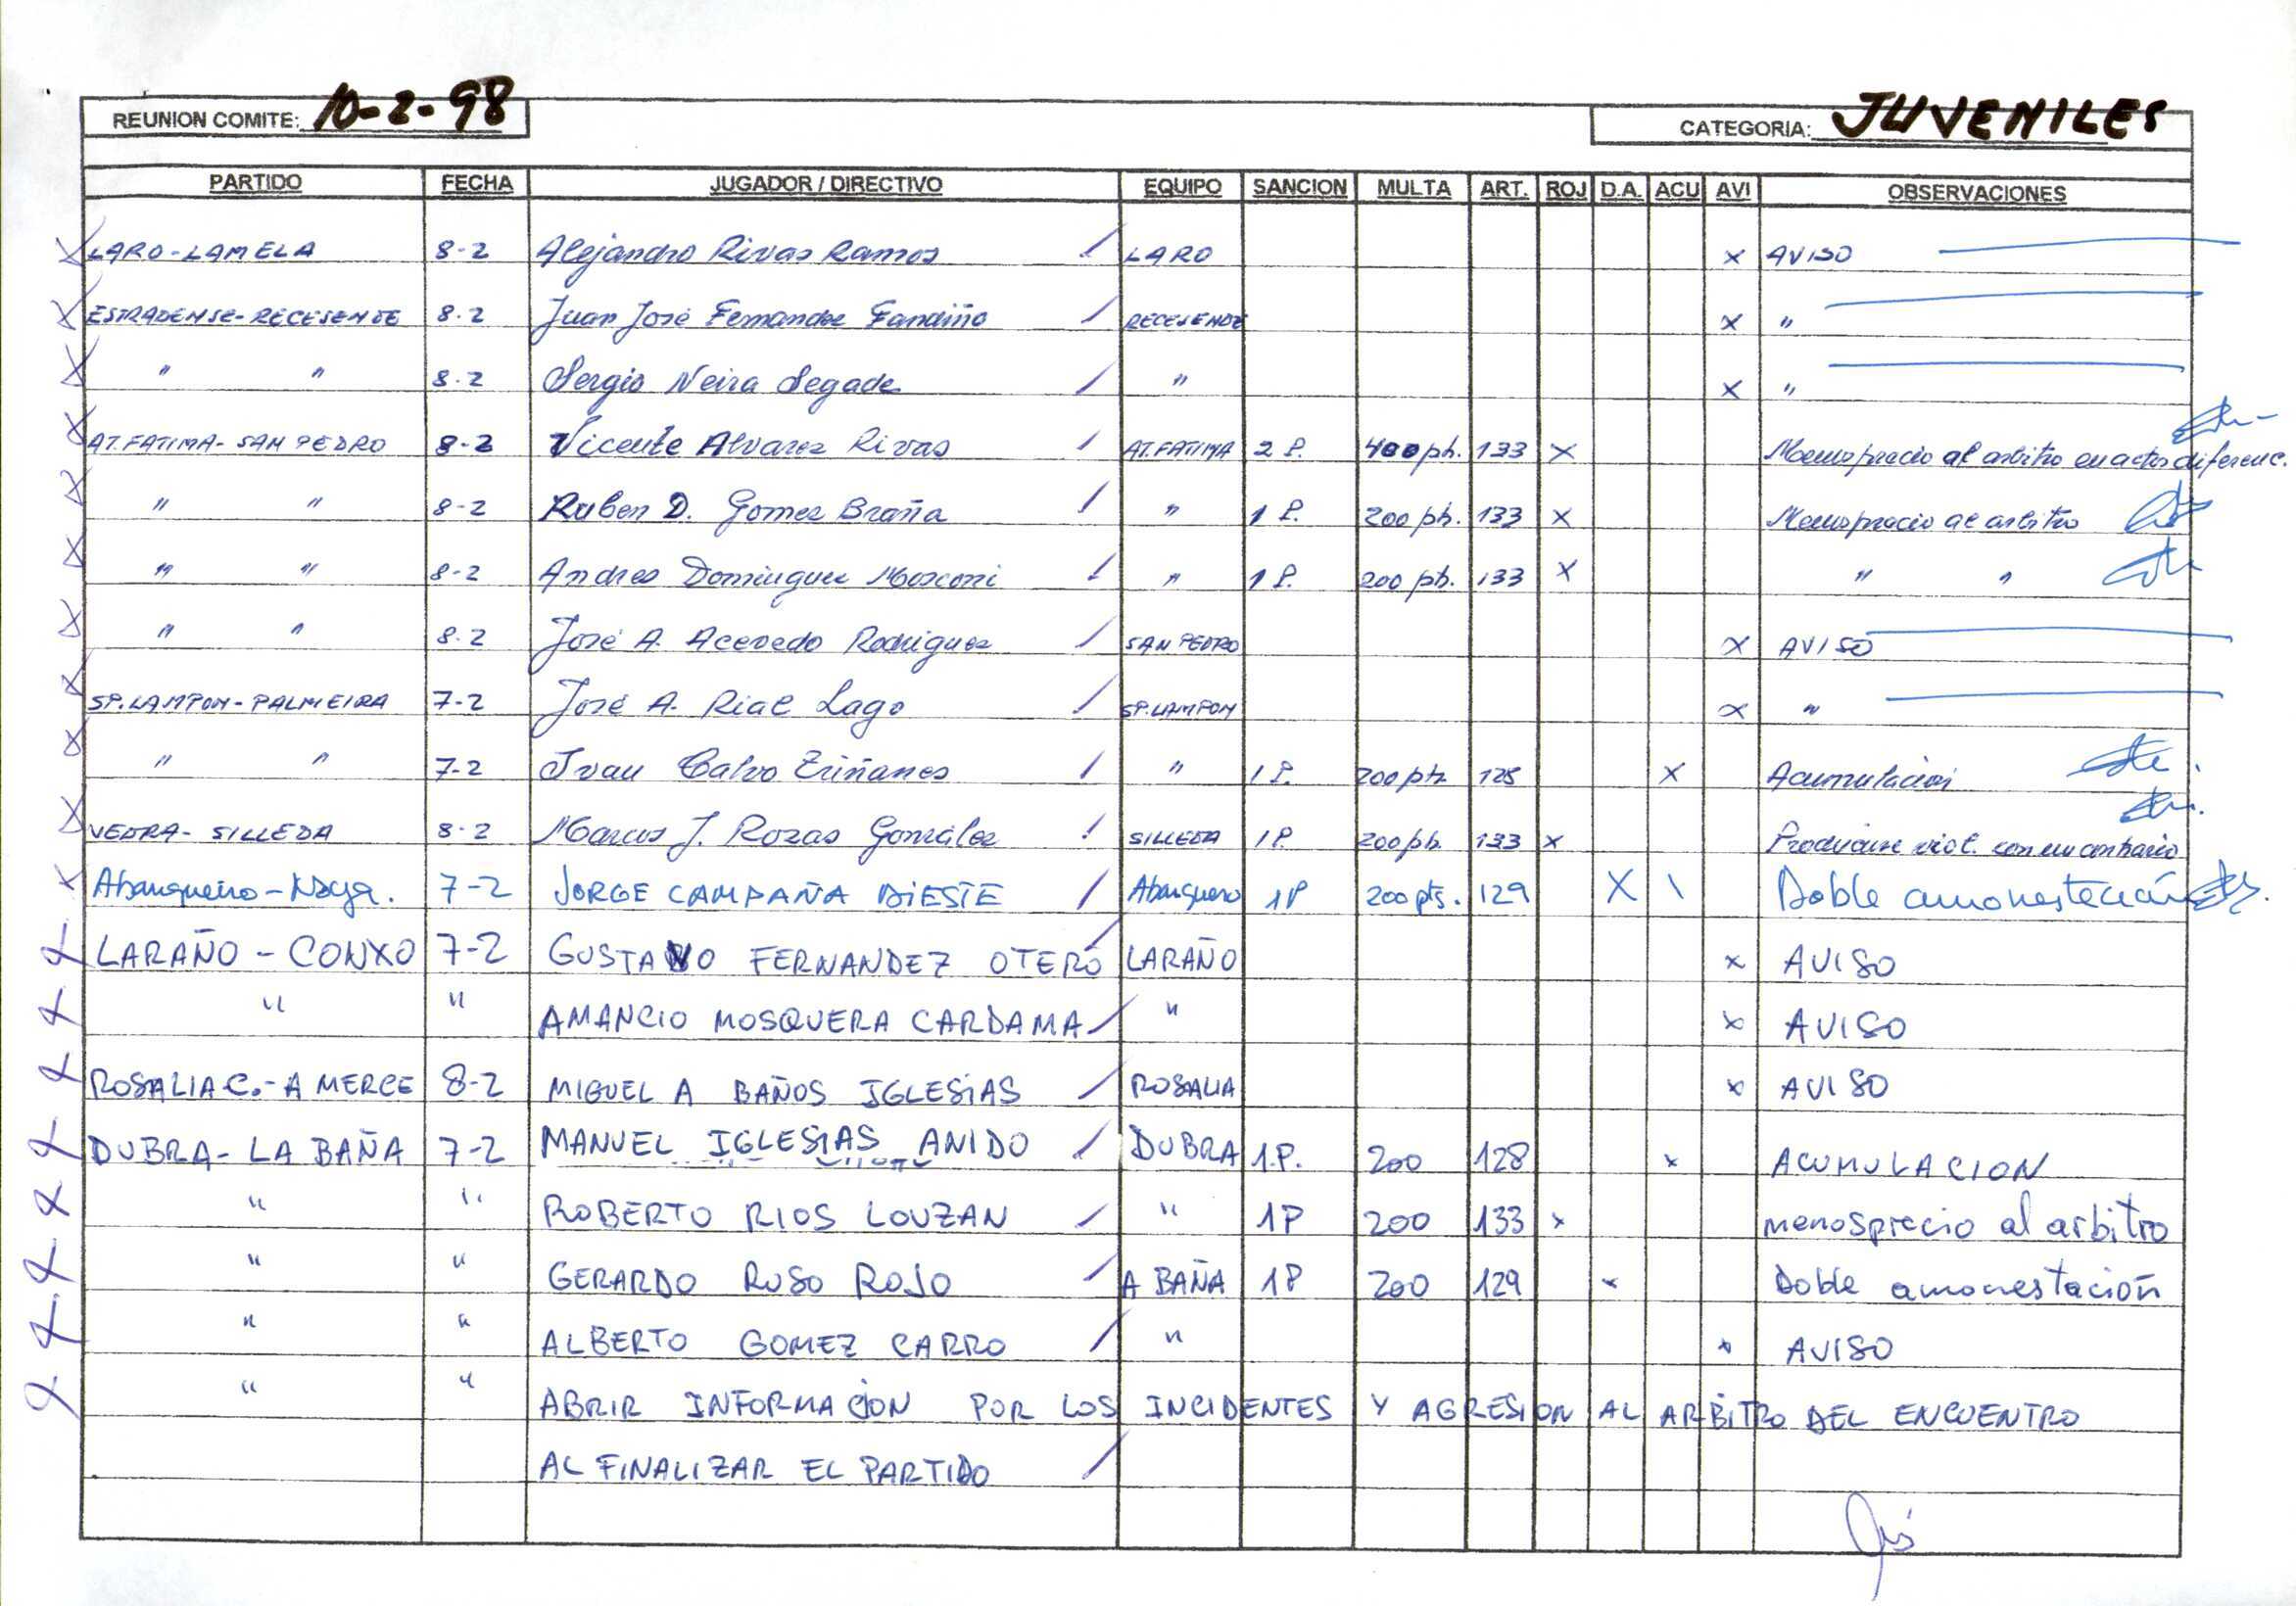 REUNION COMITE: 10-2-98 CATEGORIA: JUVENILES
PARTIDO FECHA JUGADOR / DIRECTIVO EQUIPO SANCION MULTA ART. ROJ D.A. ACU AVI OBSERVACIONES
X LARO-LAMELA 8-2 Alejandro Rivas Ramos / LARO x AVISO
X ESTRADENSE-RECESENDE 8-2 Juan José Fernandez Fandiño / RECESENDE x "
X " " 8-2 Sergio Neira Segade / " x "
X AT.FATIMA-SAN PEDRO 8-2 Vicente Alvarez Rivas / AT.FATIMA 2 P. 400 pts. 133 X Menosprecio al arbitro en actos diferenc.
X " " 8-2 Ruben D. Gomez Braña / " 1 P. 200 pts. 133 X Menosprecio al arbitro
X " " 8-2 Andres Dominguez Mosconi / " 1 P. 200 pts. 133 X " "
X " " 8-2 José A. Acevedo Rodriguez / SAN PEDRO x AVISO
X SP.LAMPON-PALMEIRA 7-2 José A. Rial Lago / SP.LAMPON x "
X " " 7-2 Ivan Calvo / " 1 P. 200 pts 128 X Acumulacion
X VEDRA-SILLEDA 8-2 Marcos J. Rozas González / SILLEDA 1P. 200 pts. 133 x Producirse viol. con un contrario
X Abanqueiro-Noya. 7-2 JORGE CAMPAÑA DIESTE / Abanqueiro 1P 200 pts. 129 X \ Doble amonestación
X LARAÑO - CONXO 7-2 GUSTAVO FERNANDEZ OTERO / LARAÑO x AVISO
X " " AMANCIO MOSQUERA CARDAMA / " x AVISO
X ROSALIA C.-A MERCE 8-2 MIGUEL A BAÑOS IGLESIAS / ROSALIA x AVISO
X DUBRA-LA BAÑA 7-2 MANUEL IGLESIAS ANIDO / DUBRA 1.P. 200 128 x ACUMULACION
X " " ROBERTO RIOS LOUZAN / " 1P 200 133 x menosprecio al arbitro
X " " GERARDO RUSO ROJO / A BAÑA 1P 200 129 x Doble amonestación
X " " ALBERTO GOMEZ CARRO / " x AVISO
X " " ABRIR INFORMACION POR LOS INCIDENTES Y AGRESION AL ARBITRO DEL ENCUENTRO
AL FINALIZAR EL PARTIDO /